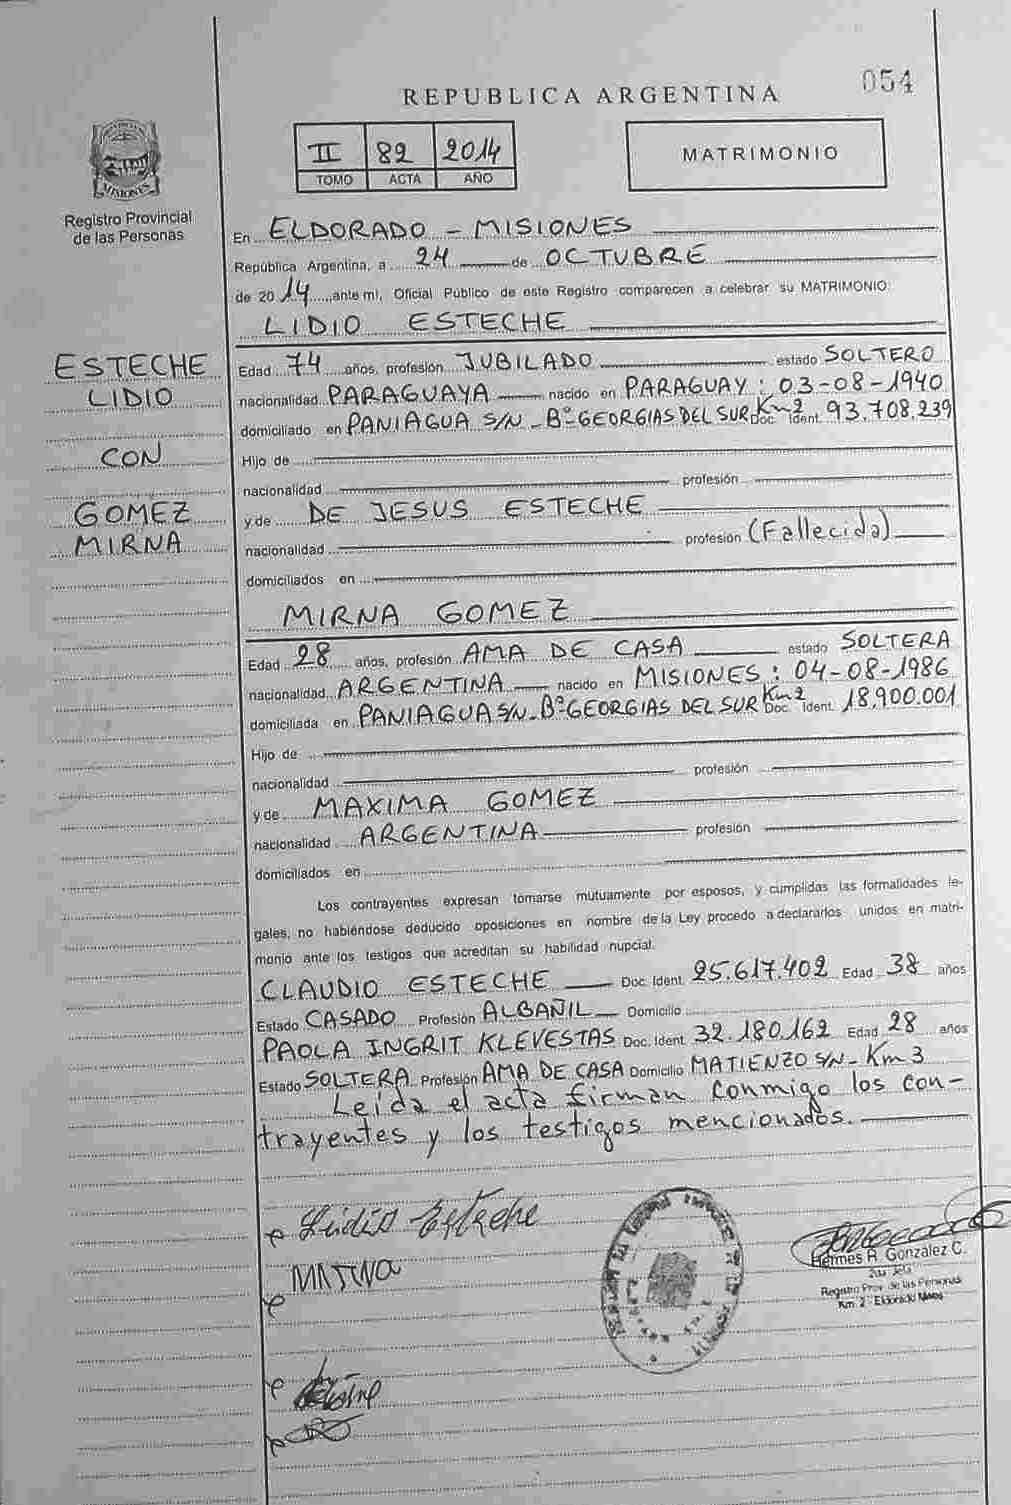 054
REPUBLICA ARGENTINA
II 82 2014
TOMO ACTA AÑO
MATRIMONIO
MISIONES
Registro Provincial
de las Personas
En ELDORADO - MISIONES
República Argentina, a 24 de OCTUBRE
de 2014 ante mí, Oficial Público de este Registro comparecen a celebrar su MATRIMONIO:
LIDIO ESTECHE
ESTECHE
LIDIO
CON
GOMEZ
MIRNA
Edad 74 años, profesión JUBILADO estado SOLTERO
nacionalidad PARAGUAYA nacido en PARAGUAY: 03-08-1940
domiciliado en PANIAGUA S/N - Bº GEORGIAS DEL SUR Km 2 Doc. Ident. 93.708.239
Hijo de
nacionalidad profesión
y de DE JESUS ESTECHE
nacionalidad profesión (Fallecida)
domiciliados en
MIRNA GOMEZ
Edad 28 años, profesión AMA DE CASA estado SOLTERA
nacionalidad ARGENTINA nacido en MISIONES: 04-08-1986
domiciliada en PANIAGUA S/N - Bº GEORGIAS DEL SUR Km 2 Doc. Ident. 18.900.001
Hijo de
nacionalidad profesión
y de MAXIMA GOMEZ
nacionalidad ARGENTINA profesión
domiciliados en
Los contrayentes expresan tomarse mutuamente por esposos, y cumplidas las formalidades le-
gales, no habiéndose deducido oposiciones en nombre de la Ley procedo a declararlos unidos en matri-
monio ante los testigos que acreditan su habilidad nupcial.
CLAUDIO ESTECHE Doc. Ident. 25.617.402 Edad 38 años
Estado CASADO Profesión ALBAÑIL Domicilio
PAOLA INGRIT KLEVESTAS Doc. Ident. 32.180.162 Edad 28 años
Estado SOLTERA Profesión AMA DE CASA Domicilio MATIENZO S/N - Km 3
Leída el acta firman conmigo los con-
trayentes y los testigos mencionados.
Lidio Esteche
Hermes R. González C.
Registro Prov. de las Personas
Km. 2 - Eldorado Mnes